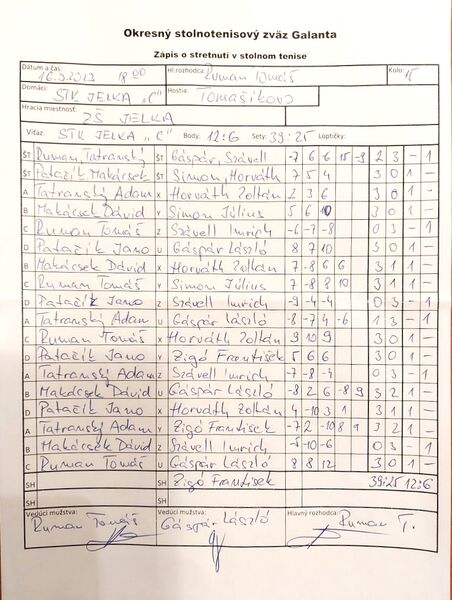 Okresný stolnotenisový zväz Galanta
Zápis o stretnutí v stolnom tenise
Dátum a čas: 16.3.2023 18:00 Hl.rozhodca: Ruman Tomáš Kolo: 15
Domáci: STK JELKA "C" Hostia: Tomášikovo
Hracia miestnosť: ZŠ JELKA
Víťaz: STK JELKA "C" Body: 12:6 Sety: 39:25 Loptičky:
ŠT Ruman, Tatranský ŠT Gáspár, Szávell -7 6 6 15 -9 2 3 - 1
ŠT Patažik Makácsek ŠT Simon, Horváth 7 5 4 3 0 1 -
A Tatranský Adam X Horváth Zoltán 2 3 6 3 0 1 -
B Makácsek Dávid Y Simon Július 5 6 10 3 0 1 -
C Ruman Tomáš Z Szávell Imrich -6 -7 -8 0 3 - 1
D Patažik Jano U Gáspár László 8 7 10 3 0 1 -
B Makácsek Dávid X Horváth Zoltán 7 -8 6 6 3 1 1 -
C Ruman Tomáš Y Simon Július 7 -8 8 10 3 1 1 -
D Patažik Jano Z Szávell Imrich -9 -4 -4 0 3 - 1
A Tatranský Adam U Gáspár László -8 -7 4 -6 1 3 - 1
C Ruman Tomáš X Horváth Zoltán 9 10 9 3 0 1 -
D Patažik Jano Y Zigó František 5 6 6 3 0 1 -
A Tatranský Adam Z Szávell Imrich -7 -8 -4 0 3 - 1
B Makácsek Dávid U Gáspár László -8 2 6 -8 9 3 2 1 -
D Patažik Jano X Horváth Zoltán 4 -10 3 1 3 1 1 -
A Tatranský Adam Y Zigó František -7 2 -10 8 3 2 1 -
B Makácsek Dávid Z Szávell Imrich -10 -6 0 3 - 1
C Ruman Tomáš U Gáspár László 8 8 12 3 0 1 -
SH SH Zigó František 39:25 12:6
SH SH
Vedúci mužstva: Ruman Tomáš Vedúci mužstva: Gáspár László Hlavný rozhodca: Ruman T.